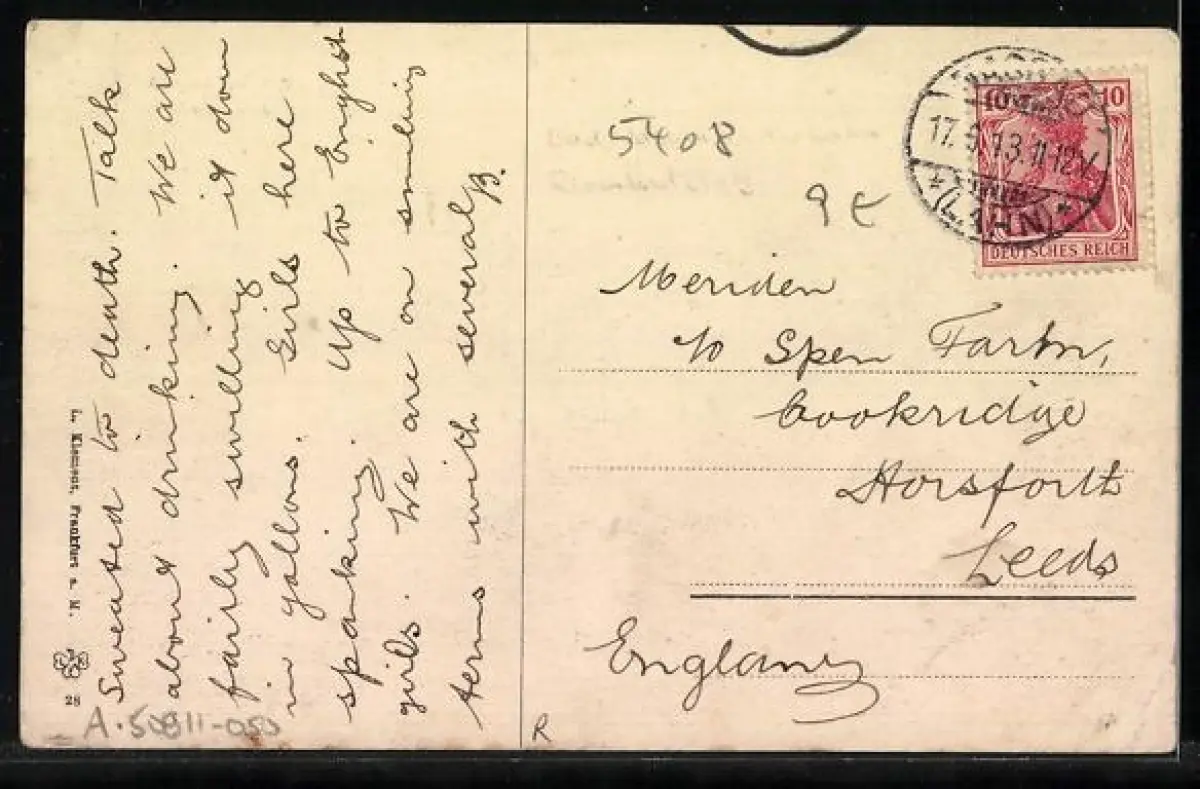 Sweated to death. Talk
about drinking. We are
fairly swilling it down
in gallons. Girls here
spanking. Up to English
girls. We are on smiling
terms with several
B.
L. Klement, Frankfurt a. M.
28
A.50811-050
R
5408
9 €
10 10
17.9.13.11-12V.
* (LAHN) *
DEUTSCHES REICH
Meriden
to Spen Farm,
Cookridge
Horsforth
Leeds
England